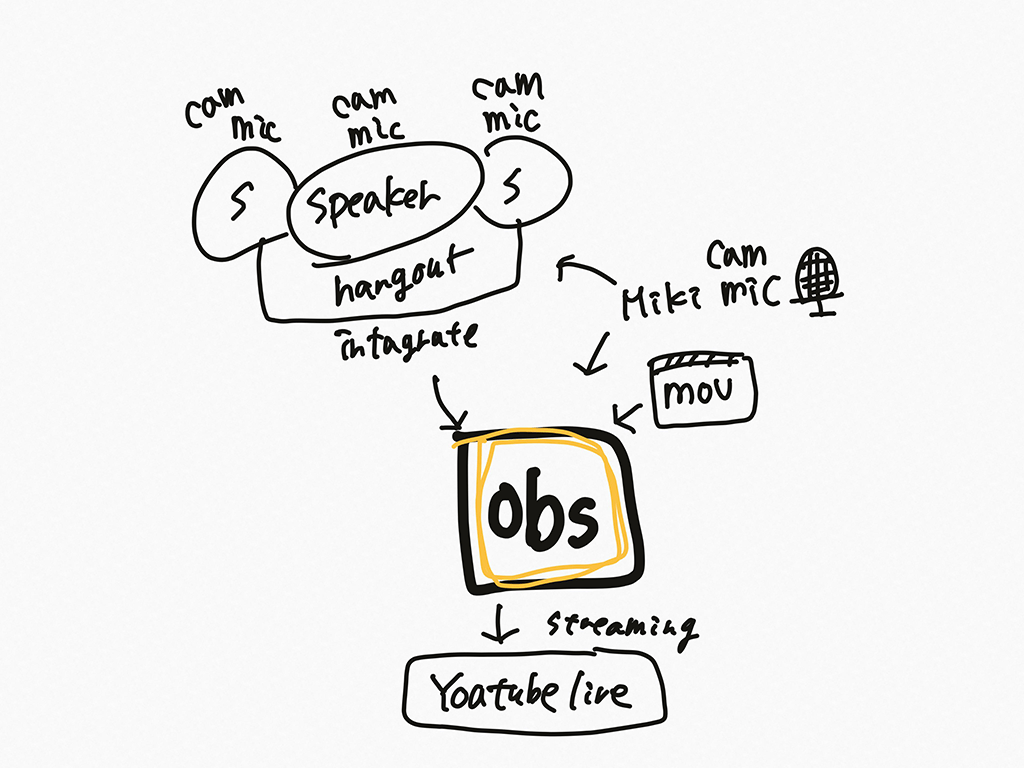 cam
mic
cam
mic
cam
mic
S
speaker
S
hangout
intagrate
cam
Miki mic
mov
obs
streaming
Yoatube live